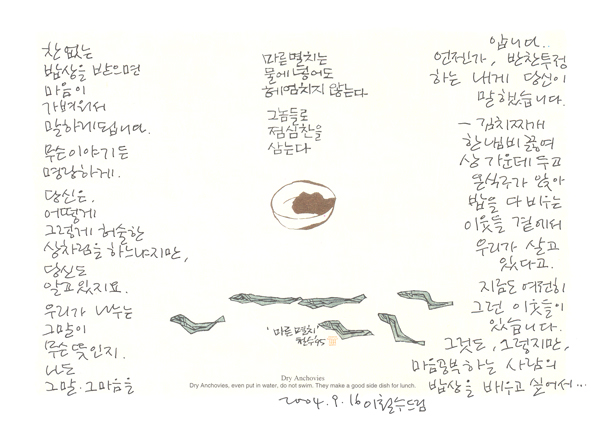 찬 없는
밥상을 받으면
마음이
가벼워서
말하게됩니다.
무슨이야기든
명랑하게.
당신은.
어떻게
그렇게 허술한
상차림을 하느냐지만,
당신도
알고있지요.
우리가 나누는
그말이
무슨 뜻인지.
나도
그말. 그마음을
마른멸치는
물에 넣어도
헤엄치지 않는다
그놈들로
점심찬을
삼는다
'마른 멸치'
철수 95
Dry Anchovies
Dry Anchovies, even put in water, do not swim. They make a good side dish for lunch.
2004.9.16 이철수드림
압니다..
언젠가, 반찬투정
하는 내게 당신이
말했습니다.
— 김치찌개
한냄비 끓여
상 가운데 두고
온식구가 앉아
밥을 다 비우는
이웃들 곁에서
우리가 살고
있다고.
지금도 여전히
그런 이웃들이
있습니다.
그것도, 그렇지만,
마음공부하는 사람의
밥상을 배우고 싶어서…